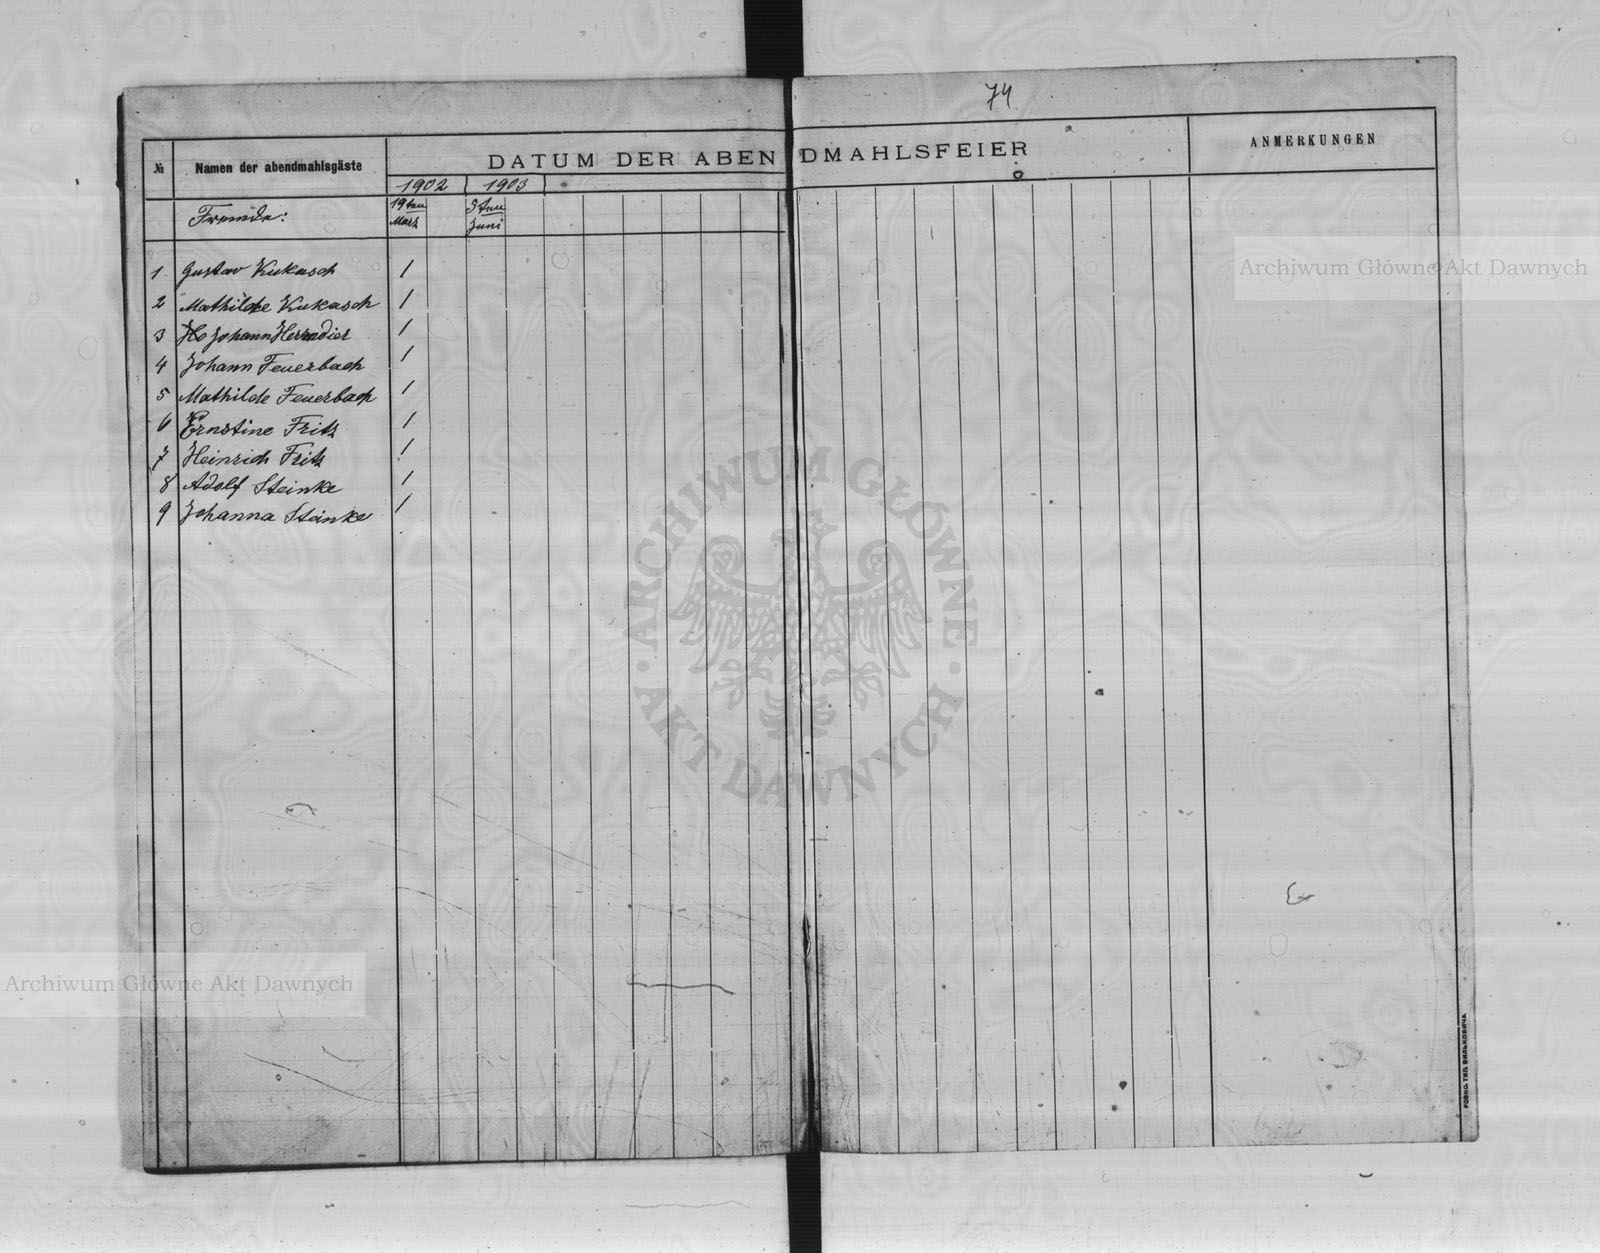 74
№ Namen der abendmahlsgäste DATUM DER ABENDMAHLSFEIER ANMERKUNGEN
1902 1903
Fremde: 19ten März 5ten Juni
1 Gustav Kukasch 1
2 Mathilde Kukasch 1
3 Johann 1
4 Johann Feuerbach 1
5 Mathilde Feuerbach 1
6 Ernstine Fritz 1
7 Heinrich Fritz 1
8 Adolf Steinke 1
9 Johanna Steinke 1
Archiwum Główne Akt Dawnych
ARCHIWUM GŁÓWNE
· AKT DAWNYCH ·
Archiwum Główne Akt Dawnych
РОВНО. ТИП. БИЛЬКОВИЧА